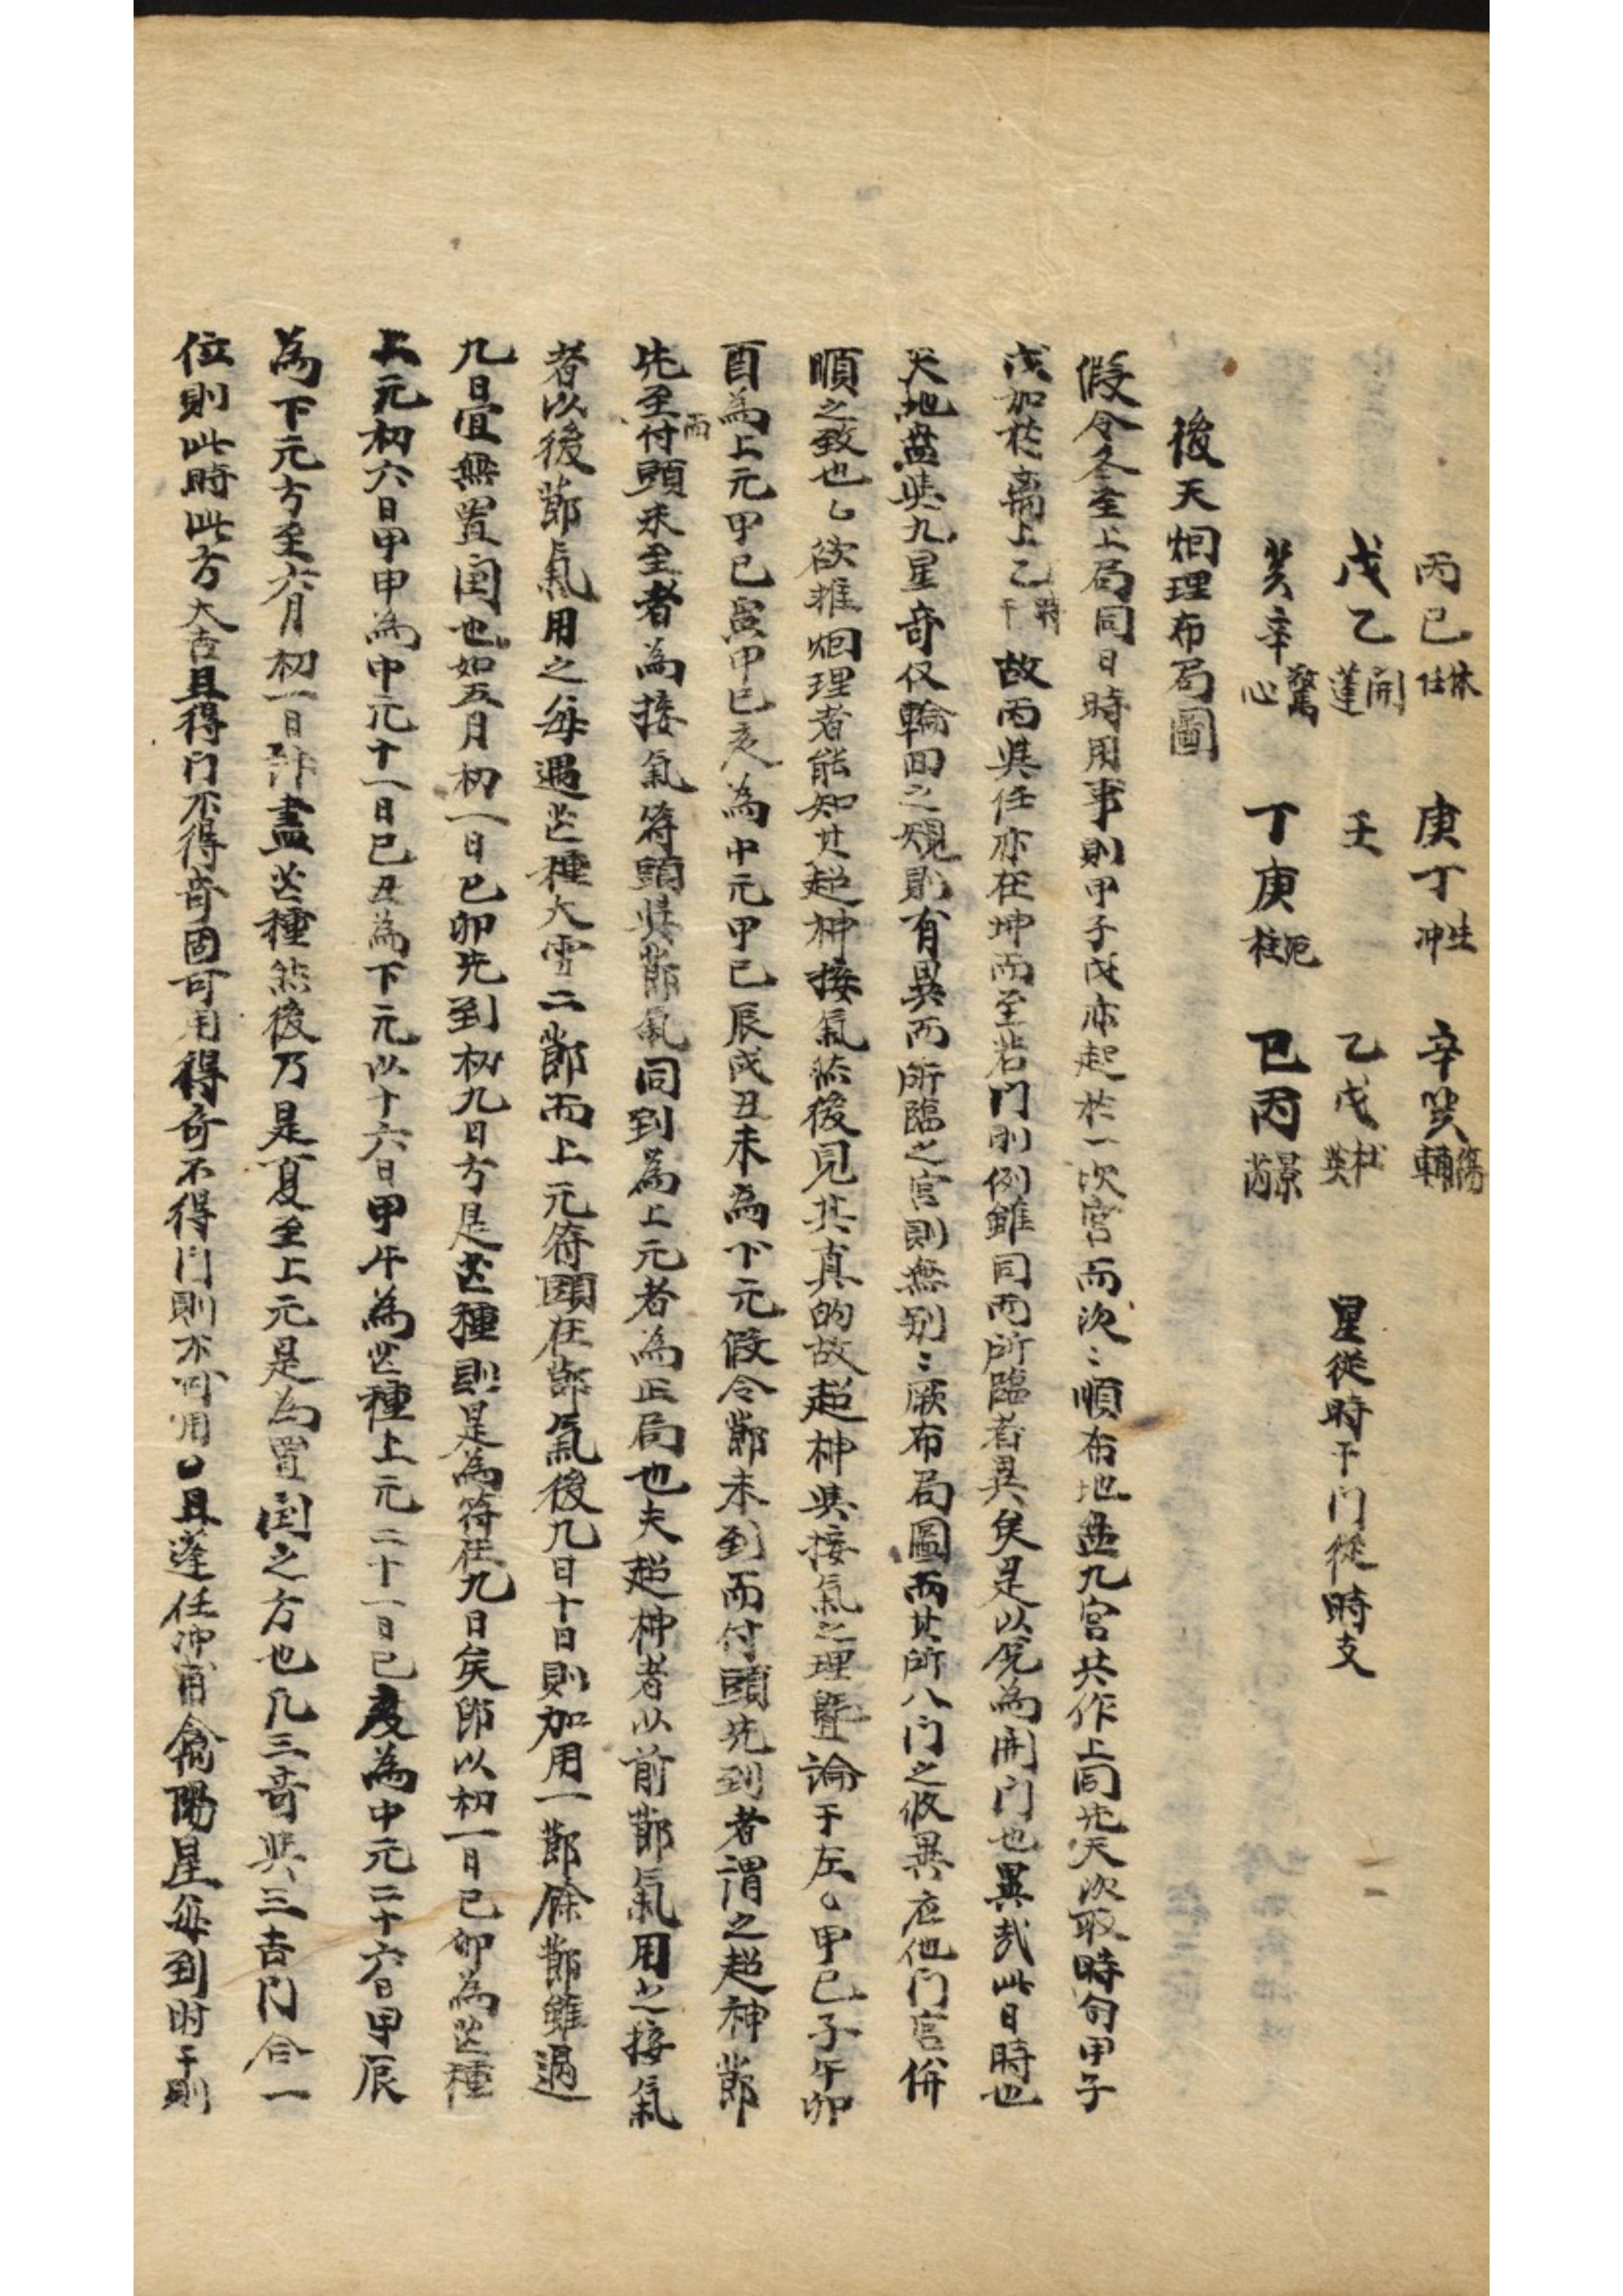 丙己休任　庚丁生冲　辛癸傷輔
戊乙開蓬　壬　乙戊杜英　星從時干門從時支
癸辛驚心　丁庚死柱　己丙景芮
後天烟理布局圖
假令冬至上局同日時用事則甲子戊亦起於一次宮而次〻順布地盘九宮共作上同先天次取時旬甲子
戊加於离上乙時干故丙與任亦在坤而至若門則例雖同而所臨者異矣是以為開門也異哉此日時也
天地盘與九星奇仅輪回之規則有異而所臨之宮則無别〻厥布局圖而其所八门之攸異在他门宮併
順之致也乙欲推烟理者能知其超神接氣然後見其真的故超神與接氣之理論于左乙甲己子午卯
酉為上元甲己寅甲巳亥為中元甲己辰戌丑未為下元假令莭未到而付頭先到者謂之超神莭
先至而付頭未至者為接氣符頭與莭氣同到為上元者為正局也夫超神者以前莭氣用之接氣
者以後莭氣用之每遇芒種大雪二莭而上元符頭在莭氣後九日十日則加用一莭餘莭雖過
九日宜無置闰也如五月初一日己卯先到初九日方是芒種則是為符在九日矣即以初一日己卯為芒種
上元初六日甲申為中元十一日己丑為下元以十六日甲午為芒種上元二十一日己亥為中元二十六日甲辰
為下元方至六月初一日許盡芒種然後乃是夏至上元是為置闰之方也凡三奇與三吉门合一
位則此時此方大吉且得门不得奇固可用得奇不得门則不可用且蓬任冲甫禽陽星每到时干則